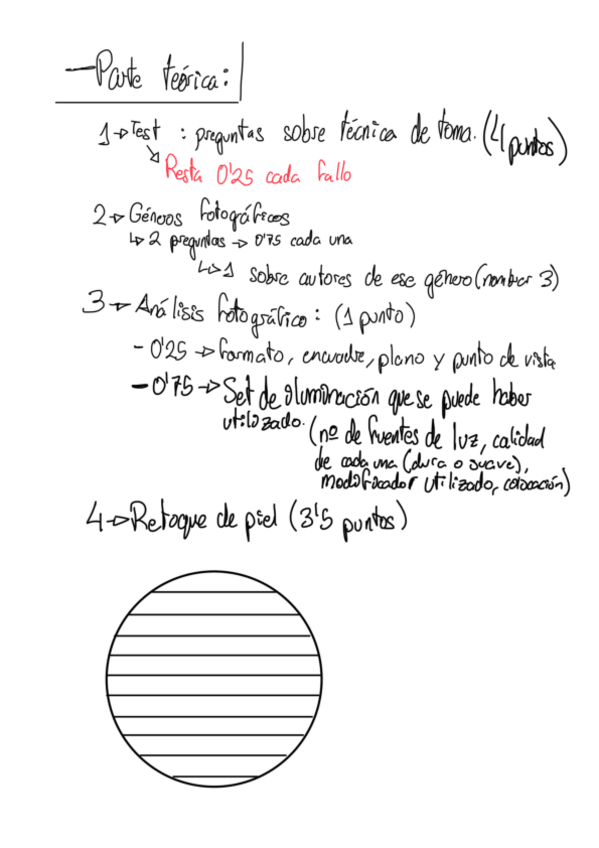 - Parte teórica:
1 → Test : preguntas sobre técnica de toma. (4 puntos)
↘ Resta 0'25 cada fallo
2 → Géneros fotográficos
↳ 2 preguntas → 0'75 cada una
↳ 1 sobre autores de ese género (nombrar 3)
3 → Análisis fotográfico: (1 punto)
- 0'25 → formato, encuadre, plano y punto de vista
- 0'75 → Set de iluminación que se puede haber
utilizado. (nº de fuentes de luz, calidad
de cada una (dura o suave),
modificador utilizado, colocación)
4 → Retoque de piel (3'5 puntos)